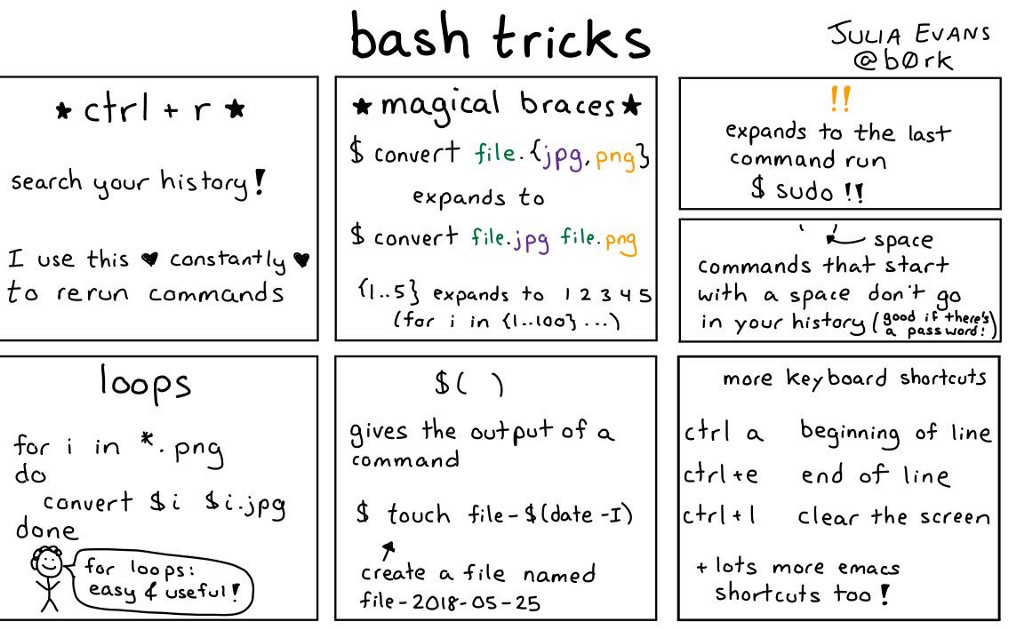 bash tricks
JULIA EVANS
@b0rk
★ ctrl + r ★
search your history!
I use this ♥ constantly ♥
to rerun commands
★ magical braces ★
$ convert file.{jpg,png}
expands to
$ convert file.jpg file.png
{1..5} expands to 1 2 3 4 5
(for i in {1..100} ...)
!!
expands to the last
command run
$ sudo !!
' ' space
commands that start
with a space don't go
in your history (good if there's
a password!)
loops
for i in *.png
do
convert $i $i.jpg
done
for loops:
easy & useful!
$( )
gives the output of a
command
$ touch file-$(date -I)
create a file named
file-2018-05-25
more keyboard shortcuts
ctrl a beginning of line
ctrl+e end of line
ctrl+l clear the screen
+ lots more emacs
shortcuts too!